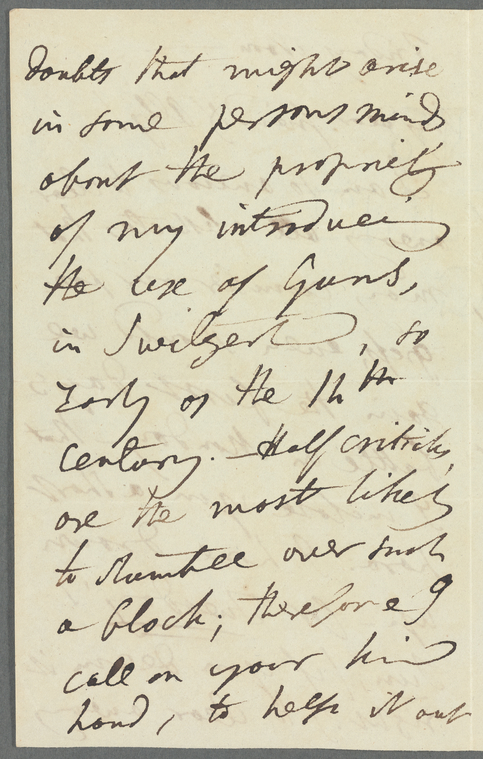 doubts that might arise
in some persons minds
about the propriety
of my introducing
the use of Guns,
in Switzerld, so
early as the 14th
century. — Half criticks,
are the most likely
to stumble over such
a block; therefore I
call on your kind
hand, to help it out